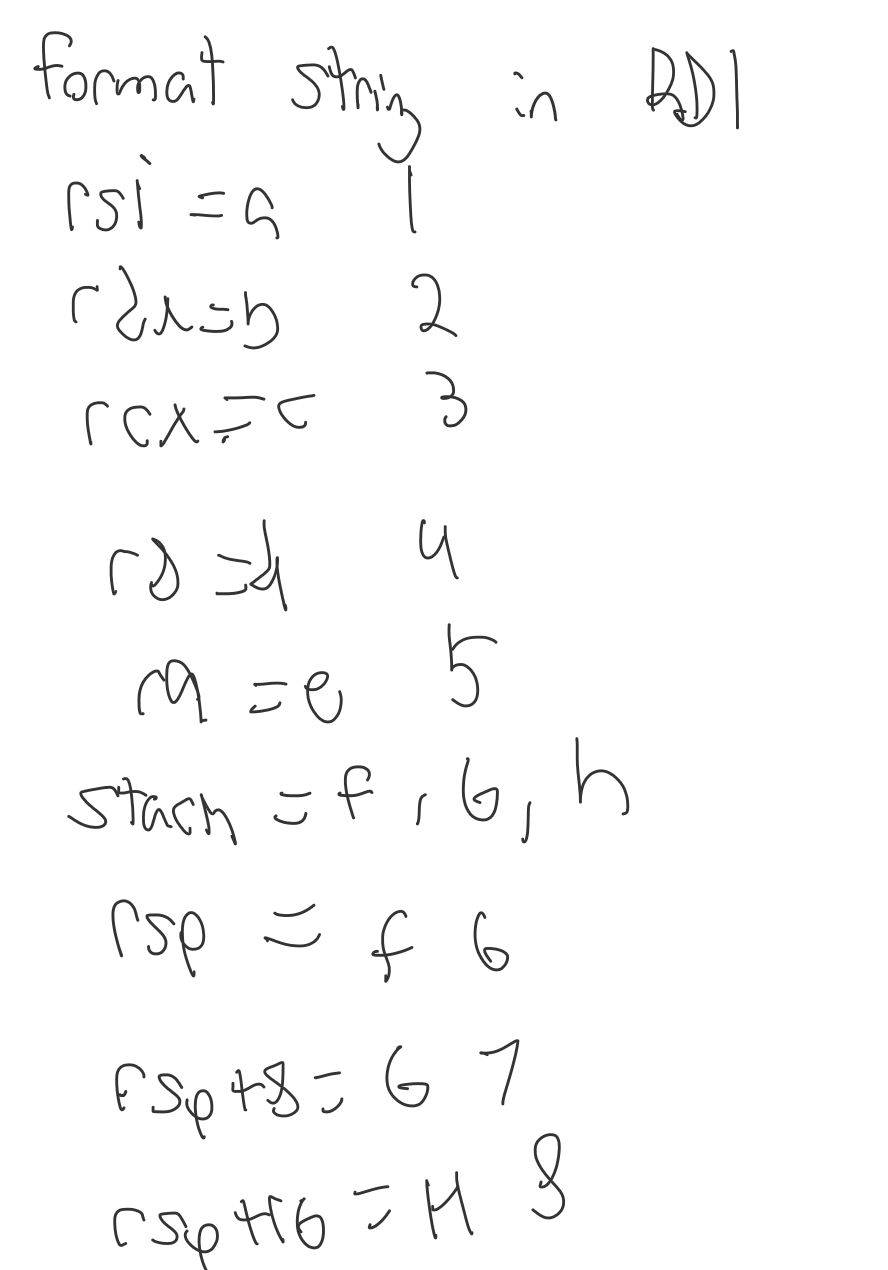 format string in RDI
rsi = a 1
rdx = b 2
rcx = c 3
r8 = d 4
r9 = e 5
stack = f, G, h
rsp = f 6
rsp+8 = G 7
rsp+16 = H 8